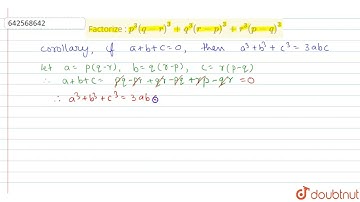 642568642
Factorize : p³(q−r)³ + q³(r−p)³ + r³(p−q)³
corollary, if a+b+c=0, then a³+b³+c³=3abc
let a= p(q-r), b=q(r-p), c= r(p-q)
∴ a+b+c= pq-pr+qr-pq+rp-qr =0
∴ a³+b³+c³=3abc
doubtnut